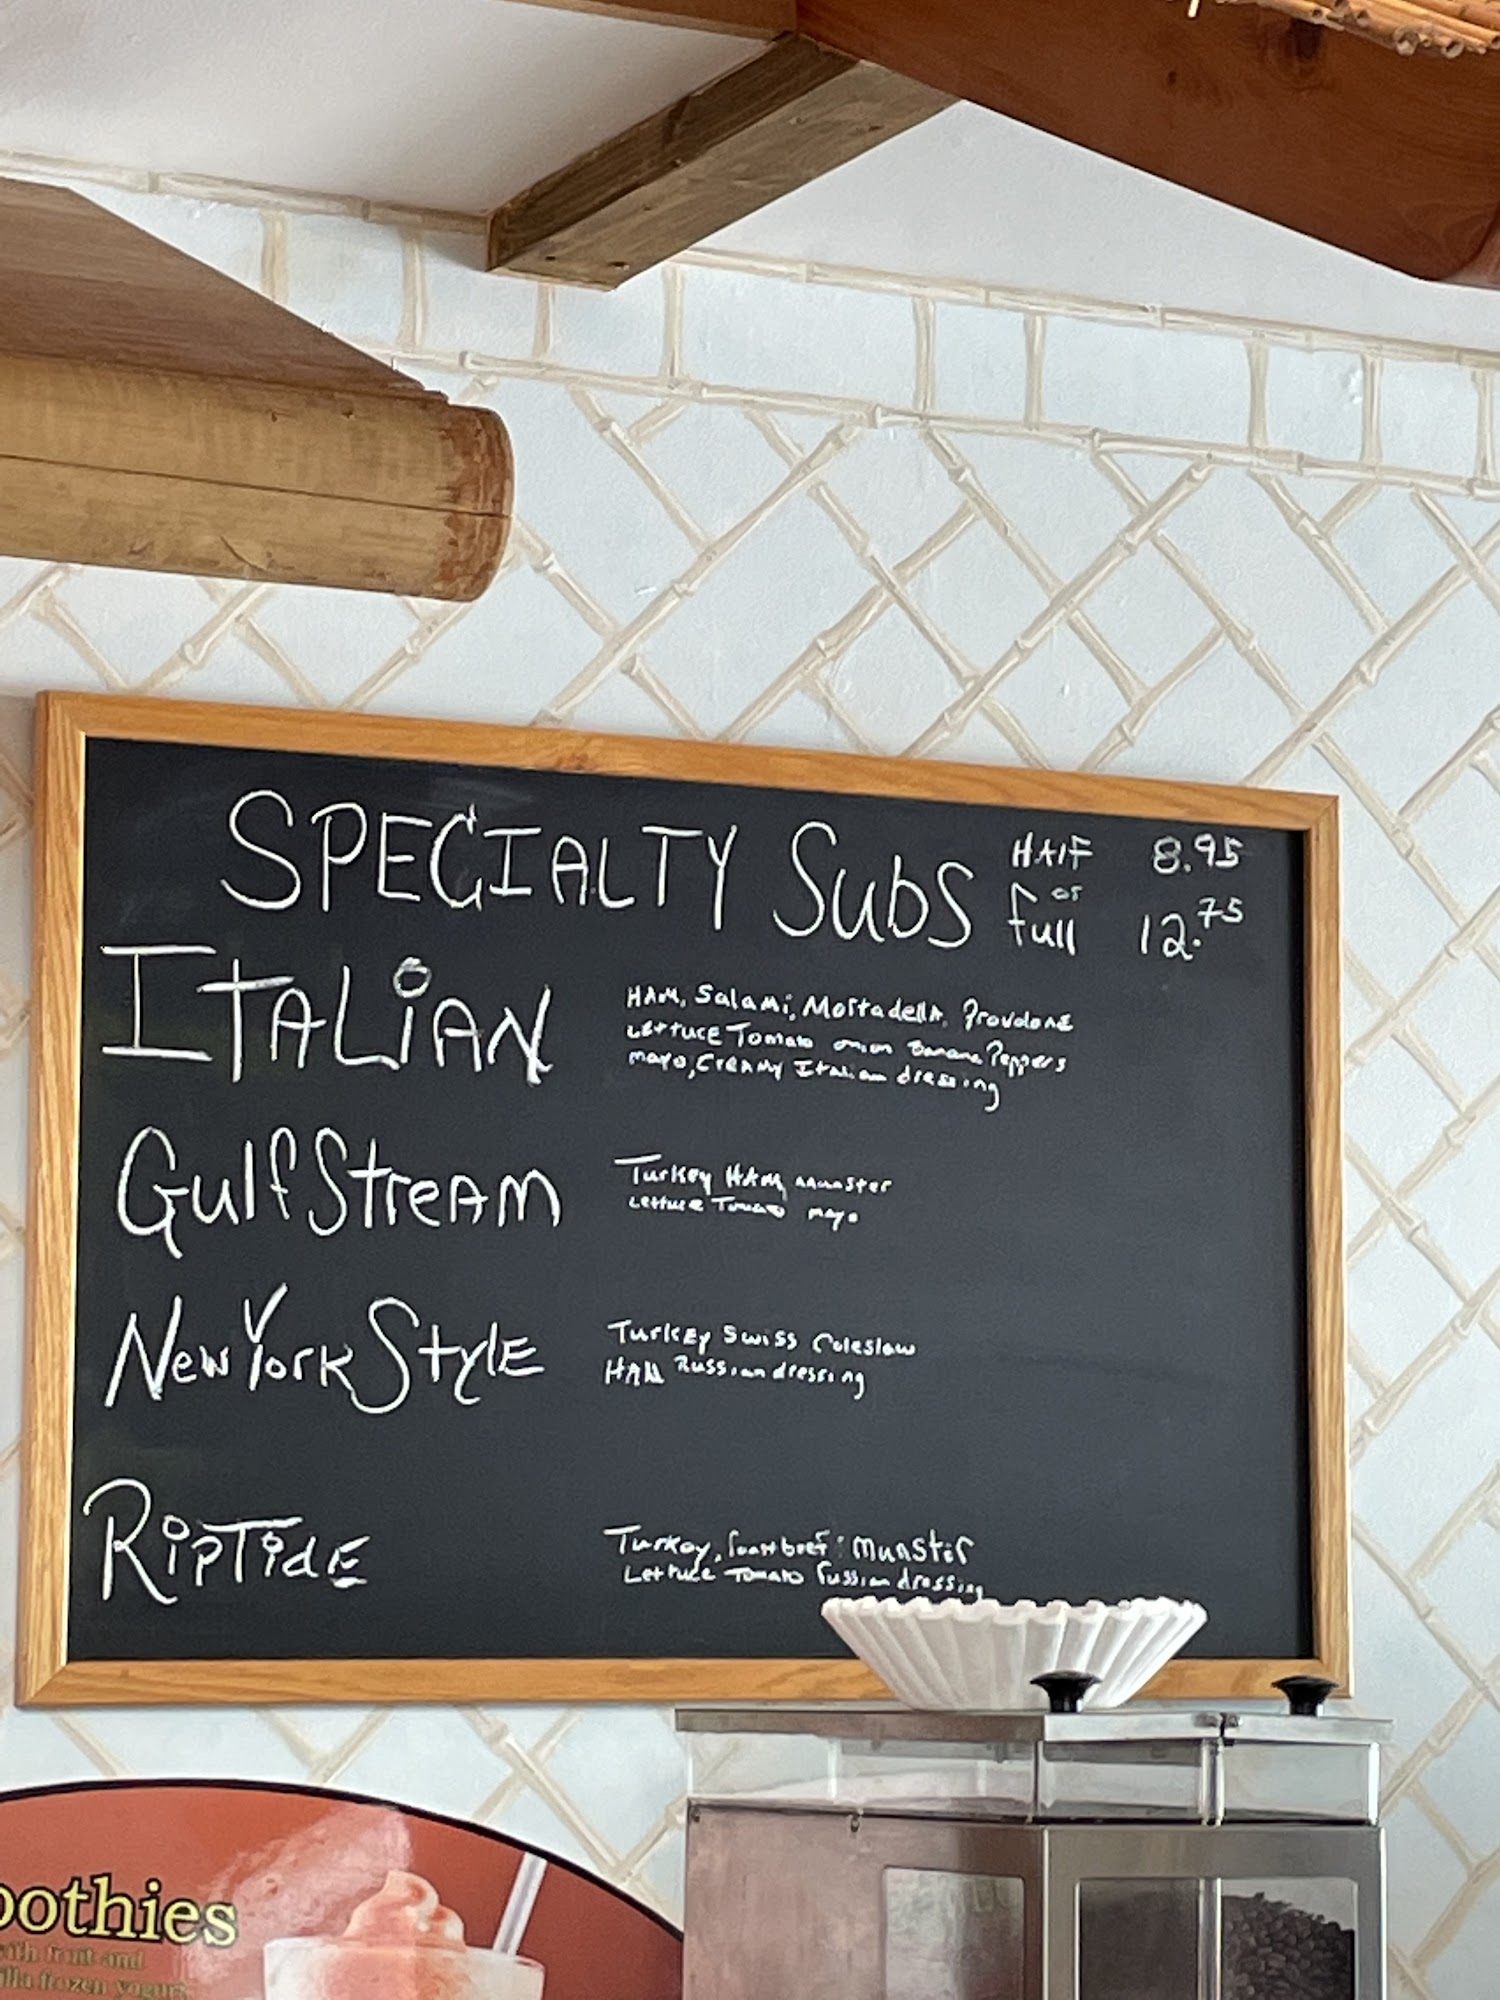 SPECIALTY SubS HAlF 8.95
or
full 12.75
ITALiAN
HAM, Salami, Mortadella, Provolone
Lettuce Tomato onion Banana Peppers
mayo, Creamy Italian dressing
GulfStreAm
Turkey HAM, munster
Lettuce Tomato mayo
New York StylE
TurkEy Swiss Coleslaw
HAM Russian dressing
RipTidE
Turkey, roast beef, munster
Lettuce Tomato russian dressing
oothies
with fruit and
illa frozen yogurt